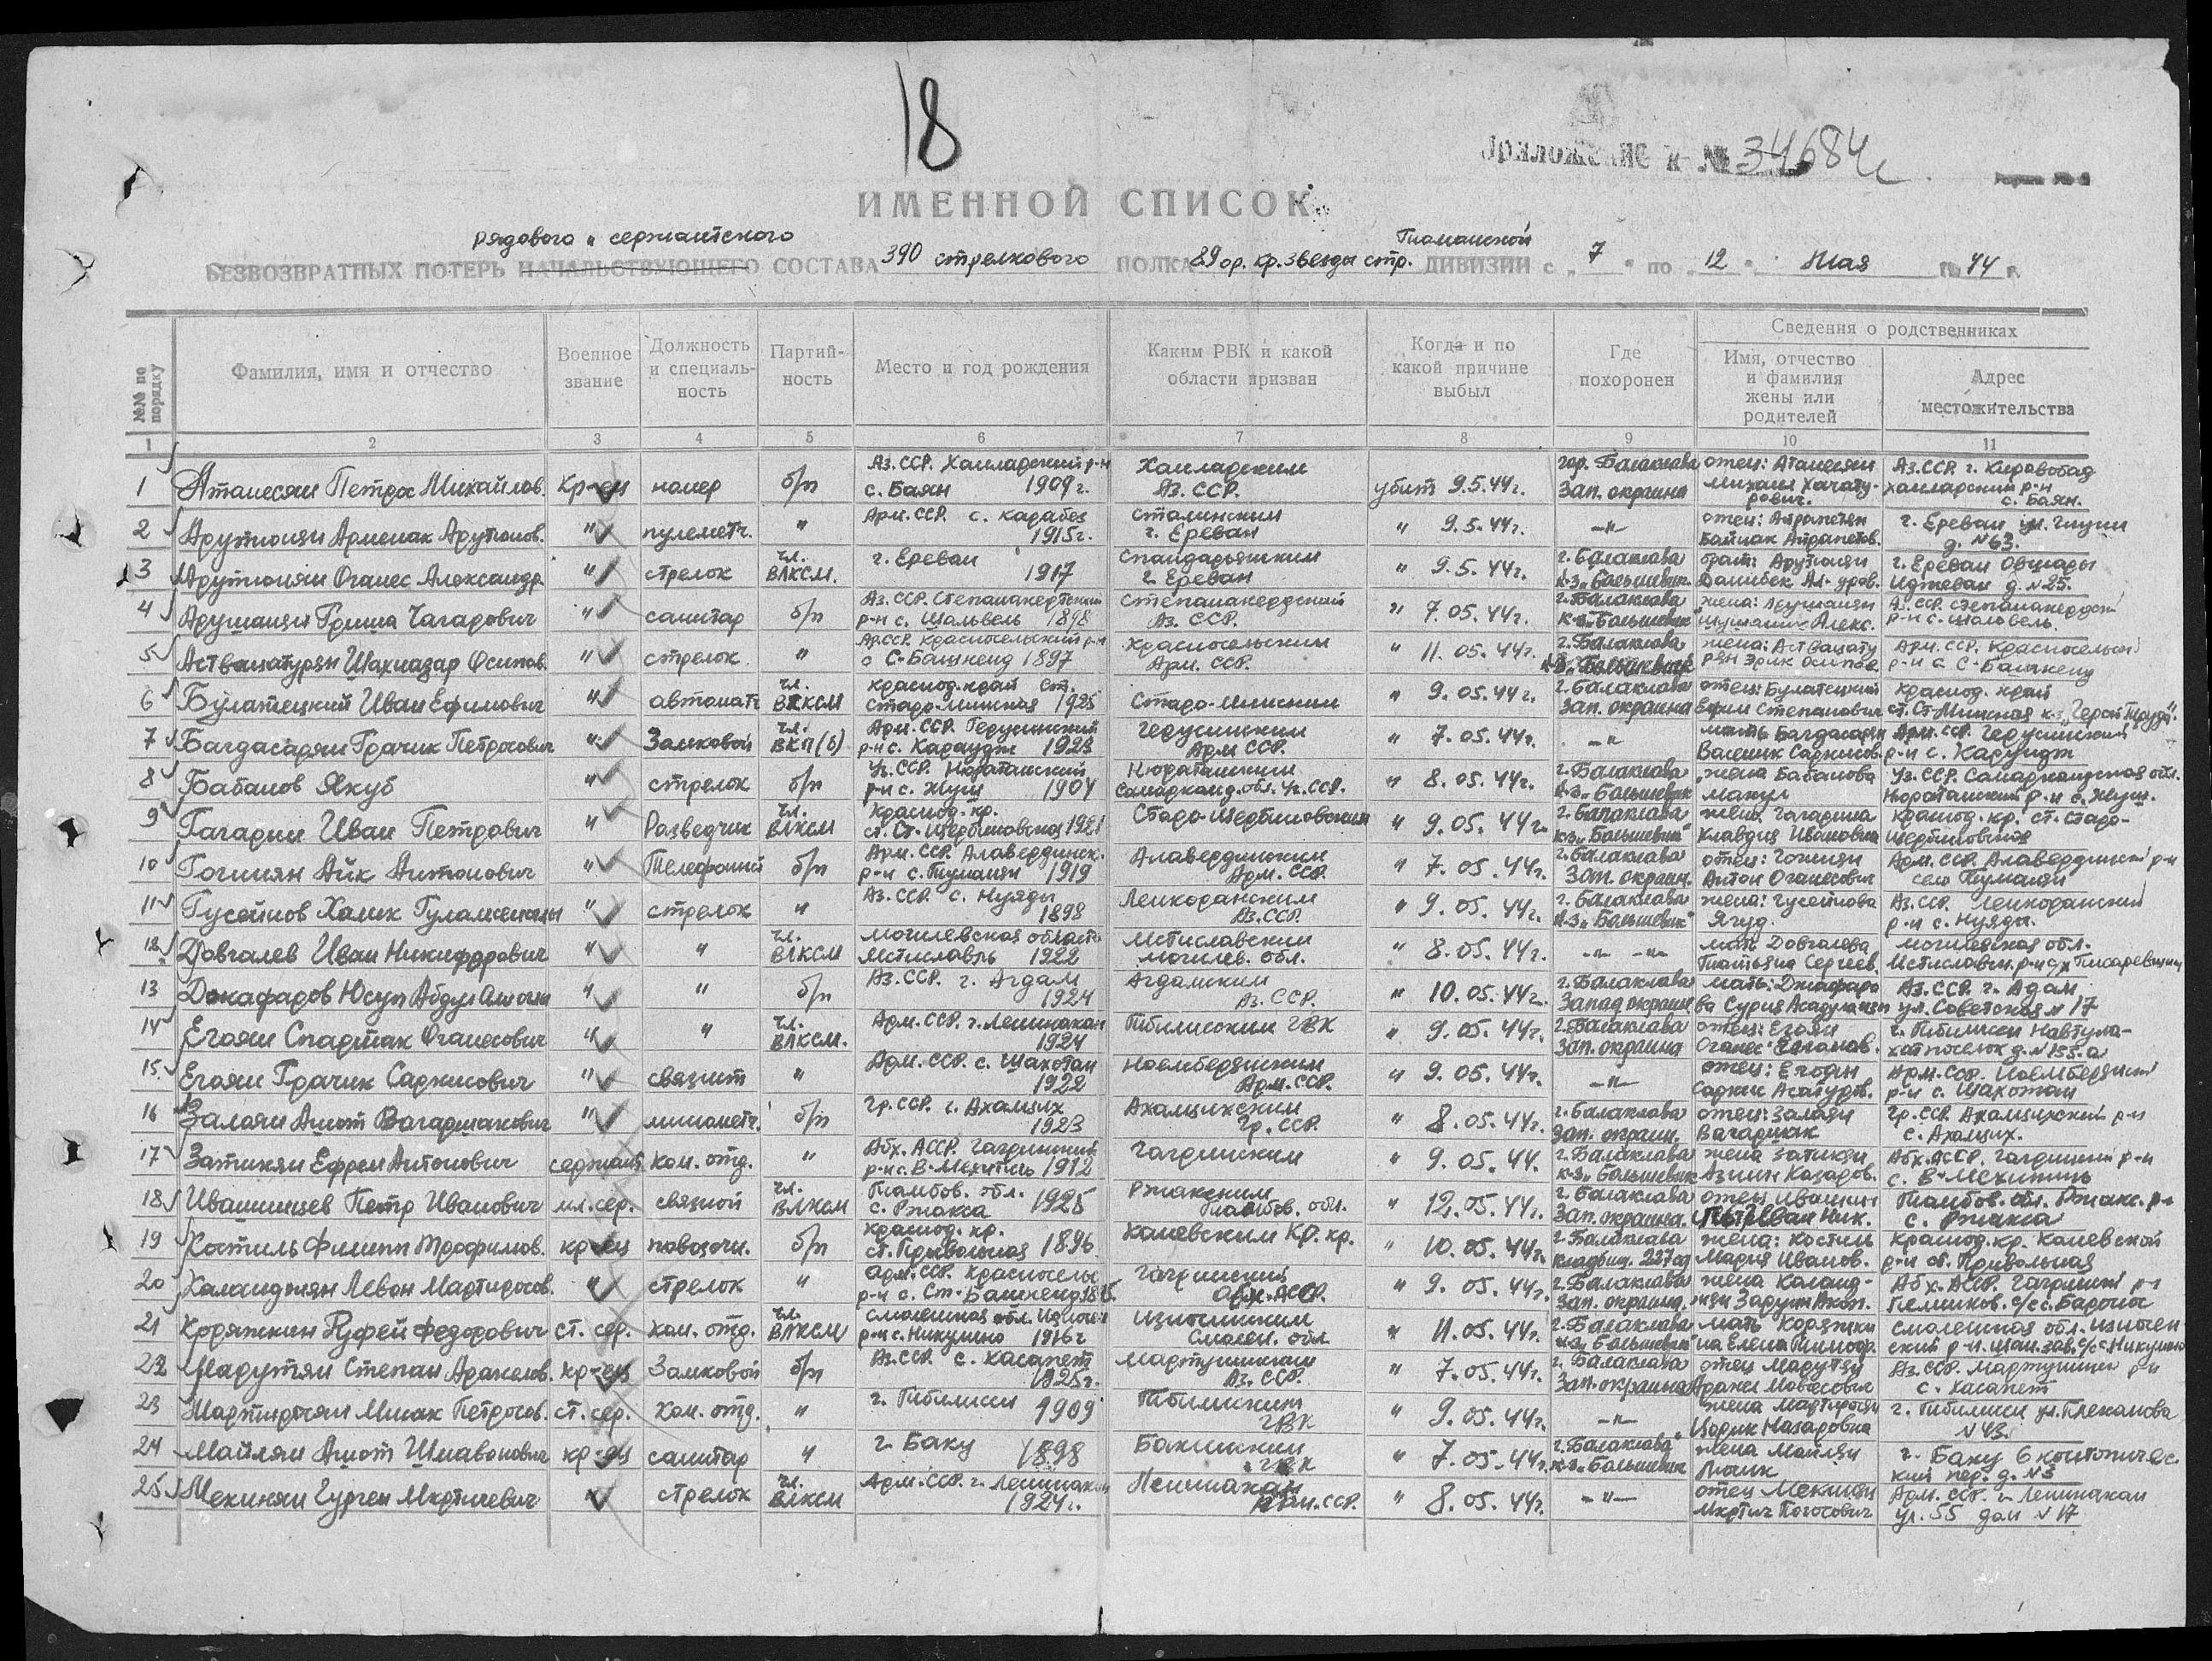 18
Приложение к № 34684с
ИМЕННОЙ СПИСОК
рядового и сержантского
БЕЗВОЗВРАТНЫХ ПОТЕРЬ НАЧАЛЬСТВУЮЩЕГО СОСТАВА 390 стрелкового ПОЛКА 89 ор. кр. звезды стр. Таманской ДИВИЗИИ с „7" по „12" Мая 44 г.
№№ по порядку
Фамилия, имя и отчество
Военное звание
Должность и специаль-ность
Партий-ность
Место и год рождения
Каким РВК и какой области призван
Когда и по какой причине выбыл
Где похоронен
Сведения о родственниках
Имя, отчество и фамилия жены или родителей
Адрес местожительства
1 2 3 4 5 6 7 8 9 10 11
1 Атанесян Петрос Михайлов. Кр-ец номер б/п Аз. ССР. Ханларский р-н с. Баян 1909 г. Ханларским Аз. ССР. убит 9.5.44г. гор. Балаклава Зап. окраина отец: Атанесян Михаил Хачату-рович. Аз. ССР. г. Кировобад Ханларский р-н с. Баян.
2 Арутюнян Арменак Арутюнов. " пулеметч. " Арм. ССР. с. 1915г. Сталинским г. Ереван " 9.5.44г. -"- отец: г. Ереван ул. д. №63.
3 Арутюнян Оганес Александр. " стрелок чл. ВЛКСМ. г. Ереван 1917 Спандарьянским г. Ереван " 9.5.44г. г. Балаклава к-з „Большевик" брат: Арутюнян г. Ереван д. №25.
4 Арушанян Гриша Чагарович " санитар б/п Аз. ССР. Степанакертский р-н с. 1898 Степанакердский Аз. ССР. " 7.05.44г. г. Балаклава к-з „Большевик" жена: Арушанян Алекс. Аз. ССР. р-н с.
5 Аствацатурян Шахназар Осипов. " стрелок " Ар.ССР. Красносельский р-н с С-Башкенд 1897 Красносельским Арм. ССР. " 11.05.44г. г. Балаклава к-з „Большевик" жена: Аствацату рян Осипов. Арм. ССР. Красносельск р-н с С-Башкенд
6 Булатецкий Иван Ефимович " автомат. чл. ВЛКСМ Краснод. край ст. Старо-Минская 1925 Старо-Минским " 9.05.44г. г. Балаклава Зап. окраина отец: Булатецкий Ефим Степанович Краснод. край ст. Ст-Минская к-з „Герой Труда".
7 Багдасарян Грачик Петросович " Замковой чл. ВКП(б) Арм. ССР. Герусинский р-н с. 1923 Герусинским Арм ССР. " 7.05.44г. -"- мать Багдасарян Саркисов. Арм. ССР. Герусинский р-н с.
8 Бабанов Якуб " стрелок б/п Уз. ССР. Нюратинский р-н с. Жуш 1904 Самарканд. обл. Уз. ССР. " 8.05.44г. г. Балаклава к-з „Большевик" жена Бабанова Уз. ССР. Самаркандская обл. р-н с. Жуш.
9 Гагарин Иван Петрович " Разведчик чл. ВЛКСМ Краснод. кр. ст. Ст-Щербиновская 1921 Старо-Щербиновским " 9.05.44г. г. Балаклава к-з „Большевик" жена: Гагарина Клавдия Ивановна Краснод. кр. ст. Старо-Щербиновская
10 Гогинян Айк Антонович " б/п Арм. ССР. Алавердинск. р-н с. Туманян 1919 Алавердинским Арм. ССР. " 7.05.44г. г. Балаклава Зап. окраин. отец: Гогинян Антон Оганесович Арм. ССР. Алавердинский р-н село Туманян
11 Гусейнов Ханик " стрелок " Аз. ССР. с. Нуяды 1898 Ленкоранским Аз. ССР. " 9.05.44г. г. Балаклава к-з „Большевик" жена: Гусейнова Ягуд. Аз. ССР. Ленкоранский р-н с. Нуяды.
12 Довгалев Иван Никифорович " " чл. ВЛКСМ Могилевская область Мстиславль 1922 Мстиславским Могилев. обл. " 8.05.44г. -"- -"- мать Довгалева Татьяна Сергеев. Могилевская обл. Мстиславск. р-н
13 Джафаров Юсуп " " б/п Аз. ССР. г. Агдам 1924 Агдамским Аз. ССР. " 10.05.44г. г. Балаклава Запад. окраина мать: Джафаро ва Сурия Аз. ССР. г. Агдам ул. Советская № 17
14 Егоян Спартак Оганесович " " чл. ВЛКСМ. Арм. ССР. г. Ленинакан 1924 Тбилисским ГВК " 9.05.44г. г. Балаклава Зап. окраина отец: Егоян Оганес г. Тбилиси Навтула-поселок д. №155-а
15 Егоян Грачик Саркисович " связист " Арм. ССР. с. 1922 Ноемберянским Арм. ССР. " 9.05.44г. -"- отец: Егоян Саркис Асатуров. Арм. ССР. Ноемберянский р-н с.
16 Залоян Ашот Вагаршакович " минометч. б/п Гр. ССР. г. Ахалцих 1923 Ахалцихским Гр. ССР. " 8.05.44г. г. Балаклава Зап. окраин. отец: Залоян Вагаршак Гр. ССР. Ахалцихский р-н с. Ахалцих.
17 Затикян Ефрем Антонович сержант Ком. отд. " Абх. АССР. Гагринский р-н с. 1912 Гагринским " 9.05.44. г. Балаклава к-з „Большевик" жена Затикян Казаров. Абх. АССР. Гагринский р-н с.
18 Иваншинцев Петр Иванович мл. сер. связной чл. ВЛКСМ Тамбов. обл. с. Ржакса 1925 Ржакским Тамбов. обл. " 12.05.44г. г. Балаклава Зап. окраина. отец Иваншин Иван Ник. Тамбов. обл. Ржакс. р-н с. Ржакса
19 Костиль Филипп Трофимов. кр-ец повозочн. б/п Краснод. кр. ст. Привольная 1896 Каневским Кр. кр. " 10.05.44г. г. Балаклава кладбищ. жена: Костиль Мария Иванов. Краснод. кр. Каневской р-н ст. Привольная
20 Каланджян Левон Мартиросов. " стрелок " Арм. ССР. Красносельс р-н с. Ст-Башкенд Гагринский Абх. АССР. " 9.05.44г. г. Балаклава Зап. окраина. жена Каландж- Абх. АССР. Гагринский р-н
21 Коряжкин Руфей Федорович ст. сер. Ком. отд. чл. ВЛКСМ Смоленская обл. р-н с. Никулино 1916г Износким Смолен. обл. " 11.05.44г. г. Балаклава к-з „Большевик" мать Коряжки на Елена Тимоф. Смоленская обл.
22 Марутян Степан Аракелов. кр-ец Замковой б/п Аз. ССР. с. Касапет 1925г. Мартунинским Аз. ССР. " 7.05.44г. г. Балаклава Зап. окраина отец Марутян Аракел Мовсесович Аз. ССР. Мартунинск р-н с. Касапет
23 Мартиросян Мисак Петросов. ст. сер. Ком. отд. " г. Тибилиси 1909 Тбилисским ГВК " 9.05.44г. -"- жена Мартиросян Назаровна г. Тибилиси ул. Плеханова №43.
24 Майлян Ашот Шмавонович кр-ец санитар " г. Баку 1898 Бакинским ГВК " 7.05.44г. г. Балаклава к-з „Большевик" жена Майлян г. Баку 6 пер. д. №3
25 Мекинян Гурген Мкртичевич " стрелок чл. ВЛКСМ Арм. ССР. г. Ленинакан 1924г. Ленинакан Арм. ССР. " 8.05.44г. -"- отец Мекинян Мкртич Погосович Арм. ССР. г. Ленинакан ул. 55 дом №17